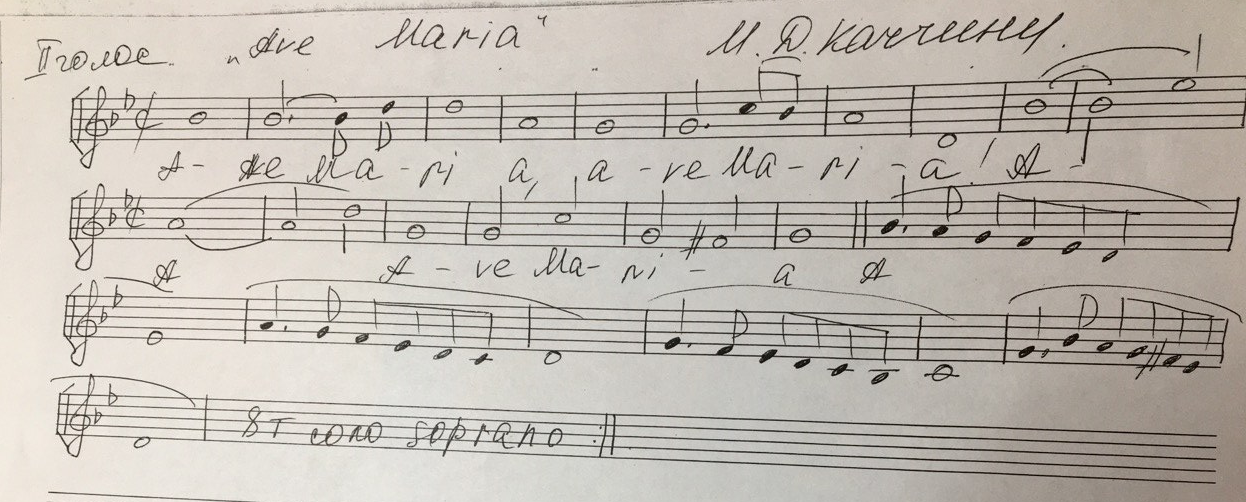 II голос. „Ave Maria“ М. Д. Каччини.
A - Ave Ma - ri a, a - ve Ma - ri - a! A -
A A - ve Ma - ri - a A
8т соло soprano